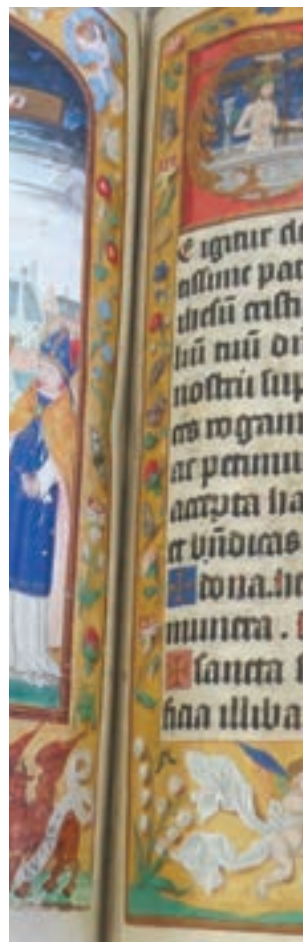 E igitur cle
tissime pat
ihesū cristū
liū tuū do
nostrū sup
ces rogam
ac petimu
accepta ha
et bn̄dicas
✠ dona. he
munera.
✠ sancta s
ficia illiba